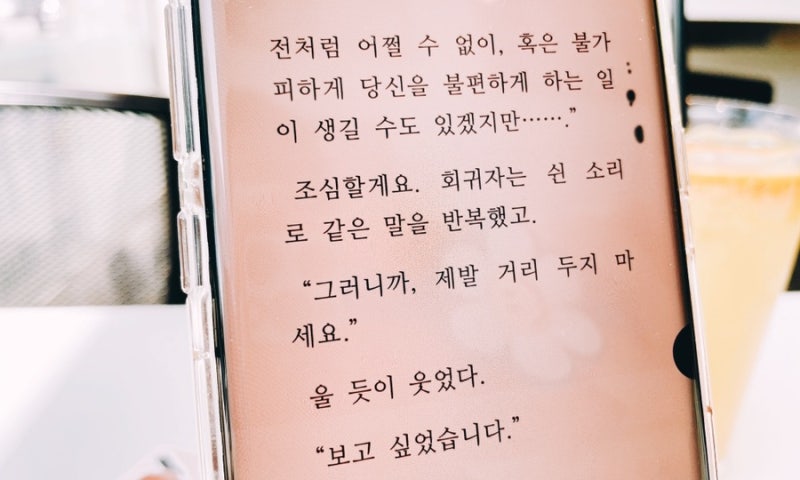 전처럼 어쩔 수 없이, 혹은 불가
피하게 당신을 불편하게 하는 일
이 생길 수도 있겠지만……."
조심할게요. 회귀자는 쉰 소리
로 같은 말을 반복했고.
"그러니까, 제발 거리 두지 마
세요."
울 듯이 웃었다.
"보고 싶었습니다."